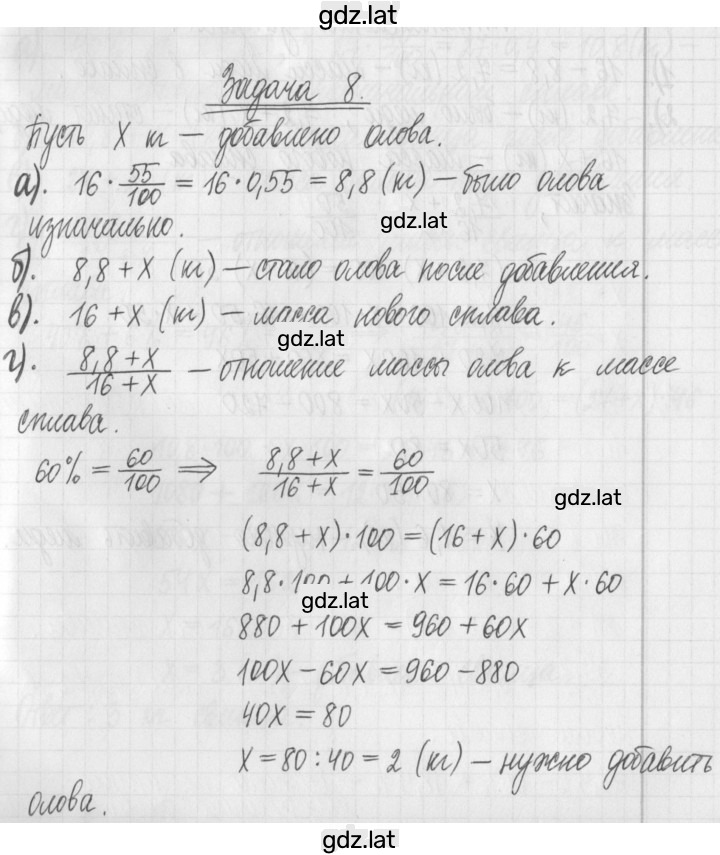 gdz.lat
Задача 8.
Пусть х т – добавлено олова.
а). 16 · 55/100 = 16 · 0,55 = 8,8 (кг) – было олова
gdz.lat
изначально.
б). 8,8 + х (кг) – стало олова после добавления.
в). 16 + х (кг) – масса нового сплава.
gdz.lat
г). 8,8 + х / 16 + х – отношение массы олова к массе
сплава.
60% = 60/100 ⇒ 8,8 + х / 16 + х = 60/100
gdz.lat
(8,8 + х) · 100 = (16 + х) · 60
8,8 · 100 + 100 · х = 16 · 60 + х · 60
gdz.lat
880 + 100х = 960 + 60х
100х – 60х = 960 – 880
40х = 80
х = 80 : 40 = 2 (кг) – нужно добавить
олова.
gdz.lat